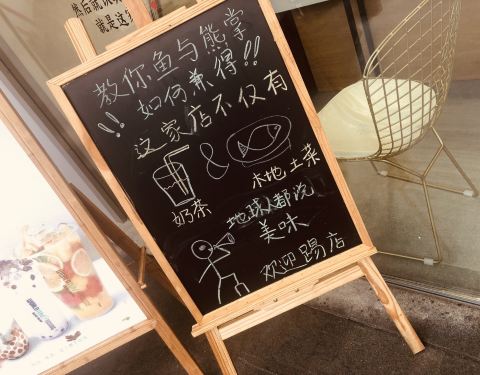 然后就没
就是这
教你鱼与熊掌
如何兼得!!
!!
这家店不仅有
&
奶茶
本地土菜
地球人都说
美味
欢迎踢店